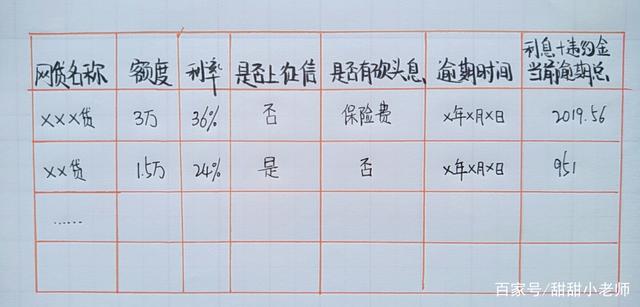 网贷名称 额度 利率 是否上征信 是否有砍头息 逾期时间 利息+违约金当前逾期总
xxx贷 3万 36% 否 保险费 x年x月x日 2019.56
xx贷 1.5万 24% 是 否 x年x月x日 951
……
百家号/甜甜小老师